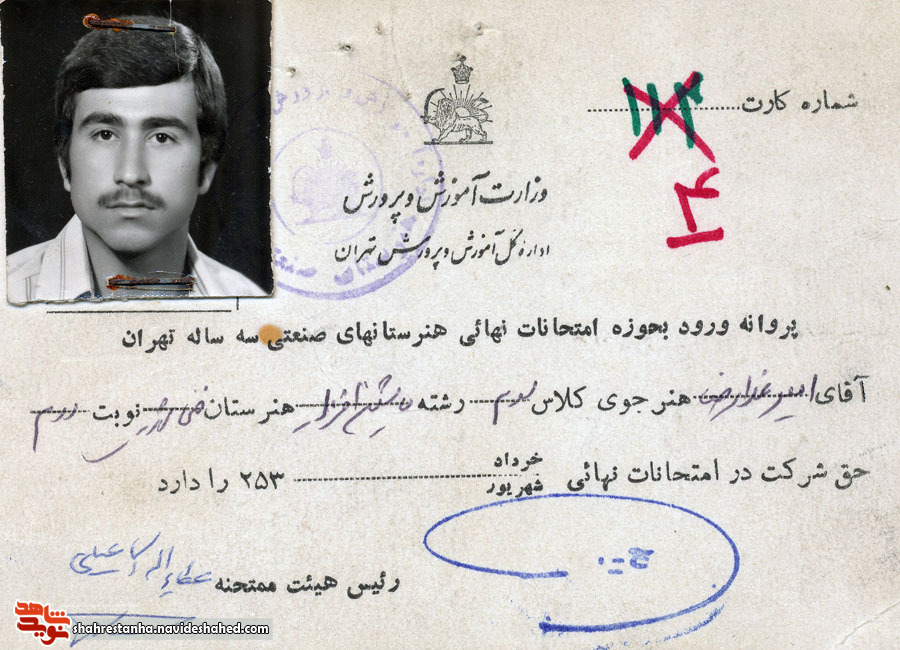 شماره کارت
۱۴
وزارت آموزش و پرورش
اداره کل آموزش و پرورش تهران
پروانه ورود بحوزه امتحانات نهائی هنرستانهای صنعتی سه ساله تهران
آقای امیر هنرجوی کلاس سوم رشته هنرستان نوبت دوم
حق شرکت در امتحانات نهائی خرداد شهریور ۲۵۳ را دارد
رئیس هیئت ممتحنه
عطاءاله اسماعیلی
نوید شاهد
shahrestanha.navideshahed.com